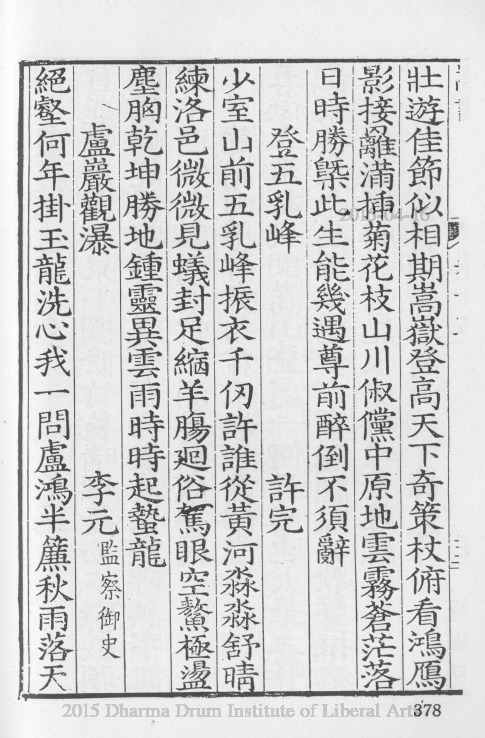 壯遊佳節似相期嵩嶽登高天下奇策杖俯看鴻鴈
影接䍦滿揷菊花枝山川俶儻中原地雲霧蒼茫落
日時勝槩此生能幾遇尊前醉倒不須辭
登五乳峰 許完
少室山前五乳峰振衣千仞許誰從黃河淼淼舒晴
練洛邑微微見蟻封足縮羊腸廻俗駕眼空鰲極盪
塵胸乾坤勝地鍾靈異雲雨時時起蟄龍
盧巖觀瀑 李元監察御史
絕壑何年掛玉龍洗心我一問盧鴻半簾秋雨落天
2015 Dharma Drum Institute of Liberal Arts
378